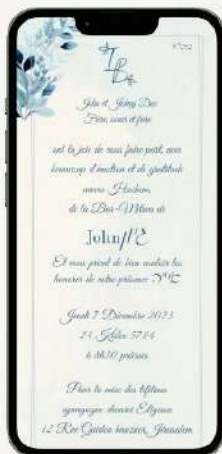 בס"ד
John et Johny Doe
Frère, sœur et frère
ont la joie de vous faire part, avec
beaucoup d'émotion et de gratitude
envers Hachem,
de la Bar-Mitsva de
John
Et vous prient de bien vouloir les
honorer de votre présence
Jeudi 7 Décembre 2023
24 Kislev 5784
à 8h30 précises
Pour la mise des téfilines
synagogue
12 Rue Jérusalem